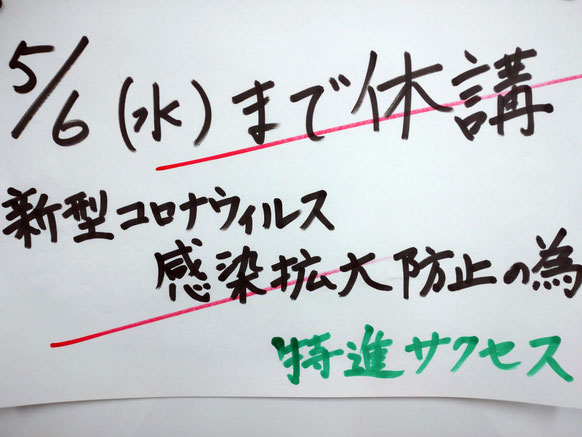 5/6(水)まで休講
新型コロナウィルス
感染拡大防止の為
特進サクセス